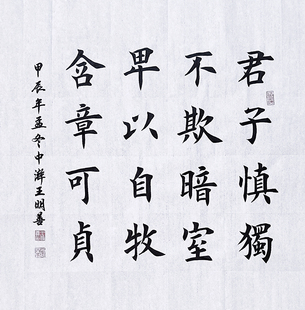 君子慎獨
不欺暗室
卑以自牧
含章可貞
甲辰年孟冬中洋王明善